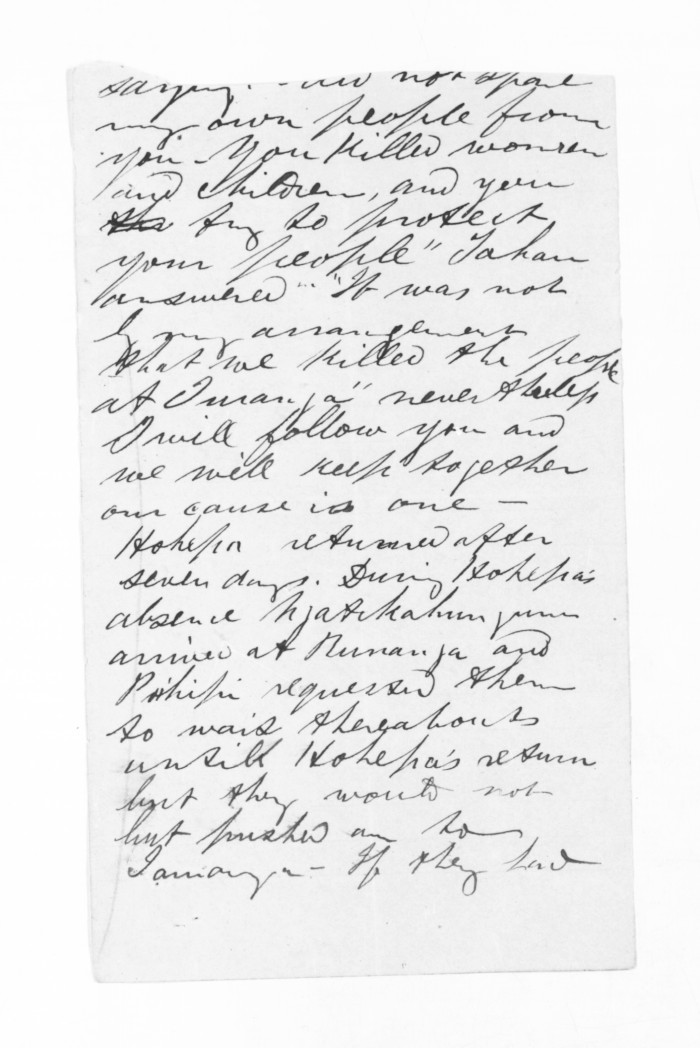 saying. - did not spare
my own people from
you - You killed women
and children, and you
try to protect
your people" Tahau
answered "It was not
by my arrangement
that we killed the people
at Omanga" nevertheless
I will follow you and
we will keep together
our cause is one -
Hohepa returned after
seven days. During Hohepa's
absence Ngatikahungunu
arrived at Runanga and
Pihipi requested them
to wait thereabouts
untill Hohepa's return
but they would not
but pushed on to
Tauranga - If they had